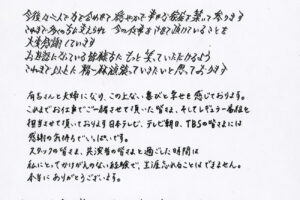 今後は二人で力を合わせて 穏やかで幸せな家庭を築いて参ります
これまで多くの方に支えられ 今の仕事をさせて頂けていることを
大変感謝しています
お世話になっている皆様方に もっと笑っていただけるよう
これまで以上に 精一杯頑張っていきたいと思っております
有吉さんと夫婦になり、この上ない喜びと幸せを感じております。
これまでお仕事でご一緒させて頂いた皆さま、そしてレギュラー番組を
担当させて頂いております日本テレビ、テレビ朝日、TBSの皆さまには
感謝の気持ちでいっぱいです。
スタッフの皆さま、共演者の皆さまと過ごした時間は
私にとってかけがえのない経験で、生涯忘れることはできません。
本当にありがとうございます。